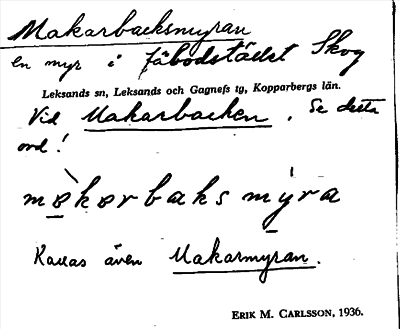 Makarbacksmyran
en myr i fäbodstället Skog
Leksands sn, Leksands och Gagnefs tg, Kopparbergs län.
Vid Makarbacken. Se detta
ord!
màkarbaks mýra
Kallas även Makarmyran.
ERIK M. CARLSSON, 1936.